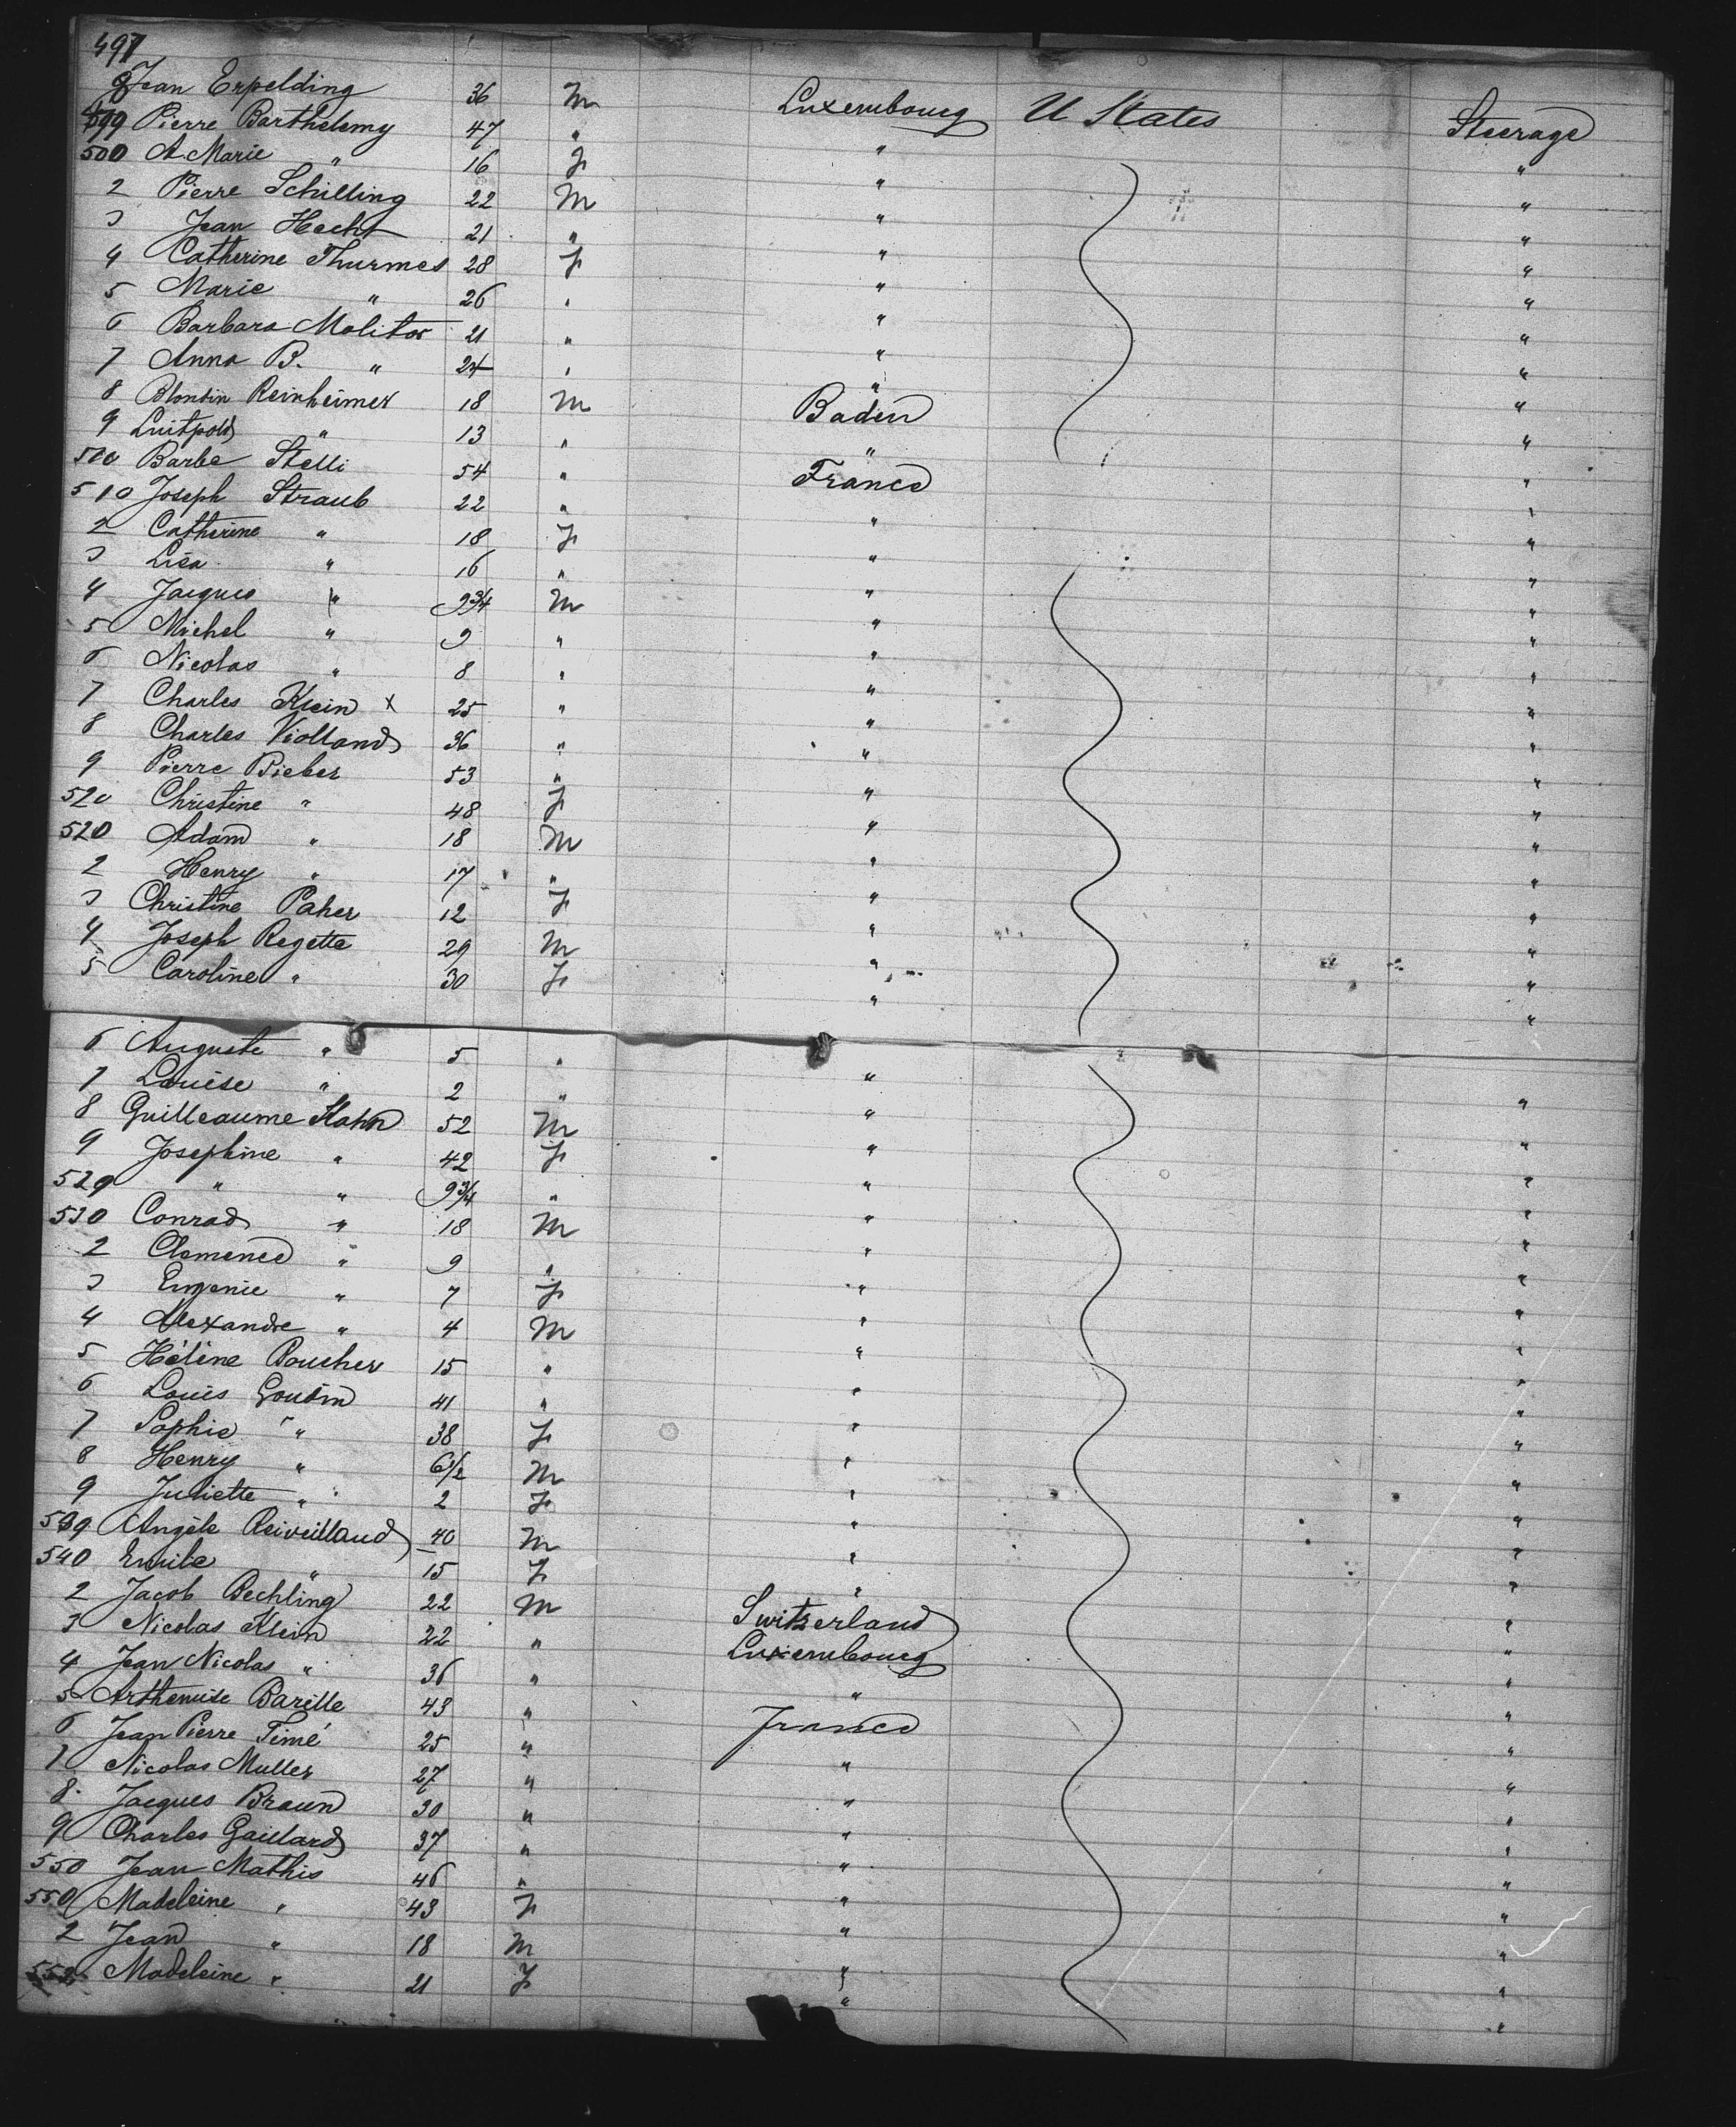 497
8 Jean Erpelding 36 M Luxembourg U States Steerage
499 Pierre Barthelemy 47 " " "
500 A. Marie " 16 F " "
2 Pierre Schilling 22 M " "
3 Jean Hecht 21 " " "
4 Catherine Thurmes 28 F " "
5 Marie " 26 " " "
6 Barbara Molitor 21 " " "
7 Anna B. " 24 " " "
8 Blondin Reinheimer 18 M Baden "
9 Luitpold " 13 " " "
500 Barbe Stelli 54 " France "
510 Joseph Straub 22 " " "
2 Catherine " 18 F " "
3 Lisa " 16 " " "
4 Jacques " 9 3/4 M " "
5 Michel " 9 " " "
6 Nicolas " 8 " " "
7 Charles Klein x 25 " " "
8 Charles Violland 36 " " "
9 Pierre Bieber 53 " " "
520 Christine " 48 F " "
520 Adam " 18 M " "
2 Henry " 17 " " "
3 Christine Paher 12 F " "
4 Joseph Regette 29 M " "
5 Caroline " 30 F " "
6 Auguste " 5 " " "
7 Louise " 2 " " "
8 Guilleaume Hahn 52 M " "
9 Josephine " 42 F " "
529 " " 9 3/4 " " "
530 Conrad " 18 M " "
2 Clemence " 9 " " "
3 Eugenie " 7 F " "
4 Alexandre " 4 M " "
5 Hélène Boucher 15 " " "
6 Louis Goudin 41 " " "
7 Sophie " 38 F " "
8 Henry " 6 1/2 M " "
9 Juliette " 2 F " "
539 Angèle Reiveilland 40 M " "
540 Emilie " 15 F " "
2 Jacob Bechling 22 M Switzerland "
3 Nicolas Klein 22 " Luxembourg "
4 Jean Nicolas " 36 " " "
5 Arthemise Barelle 43 " France "
6 Jean Pierre Timé 25 " " "
7 Nicolas Muller 27 " " "
8 Jacques Braun 30 " " "
9 Charles Gaillard 37 " " "
550 Jean Mathis 46 " " "
550 Madeleine " 43 F " "
2 Jean " 18 M " "
552 Madeleine " 21 F " "